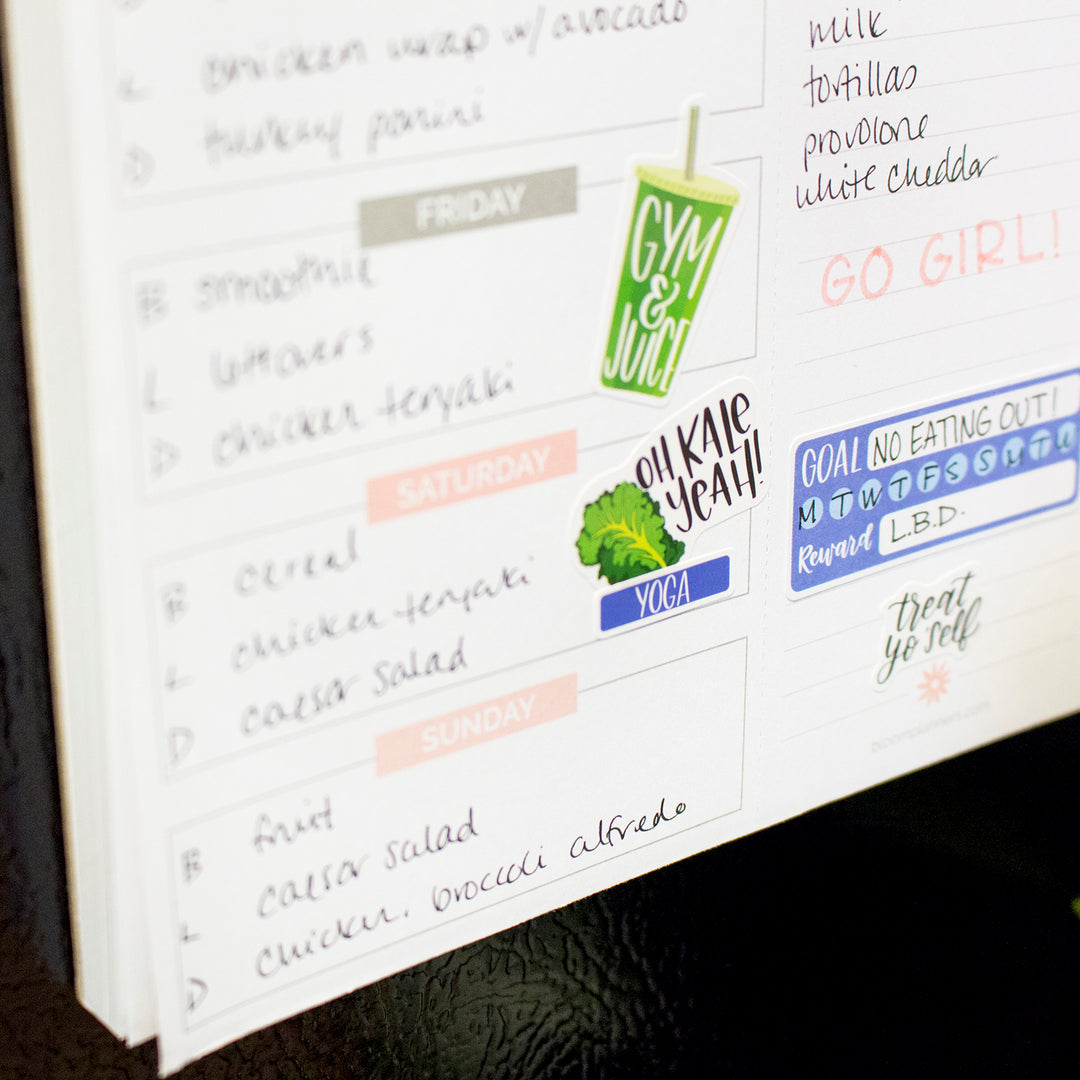 chicken wrap w/ avocado
L
turkey panini
D
FRIDAY
B smoothie
L leftovers
D chicken teryaki
GYM
&
JUICE
SATURDAY
B cereal
L chicken teryaki
D caesar salad
OH KALE
YEAH!
YOGA
SUNDAY
B fruit
L caesar salad
D chicken. broccoli alfredo
milk
tortillas
provolone
white cheddar
GO GIRL!
GOAL NO EATING OUT!
M T W T F S S M T W
Reward L.B.D.
treat
yo' self
bloomplanners.com